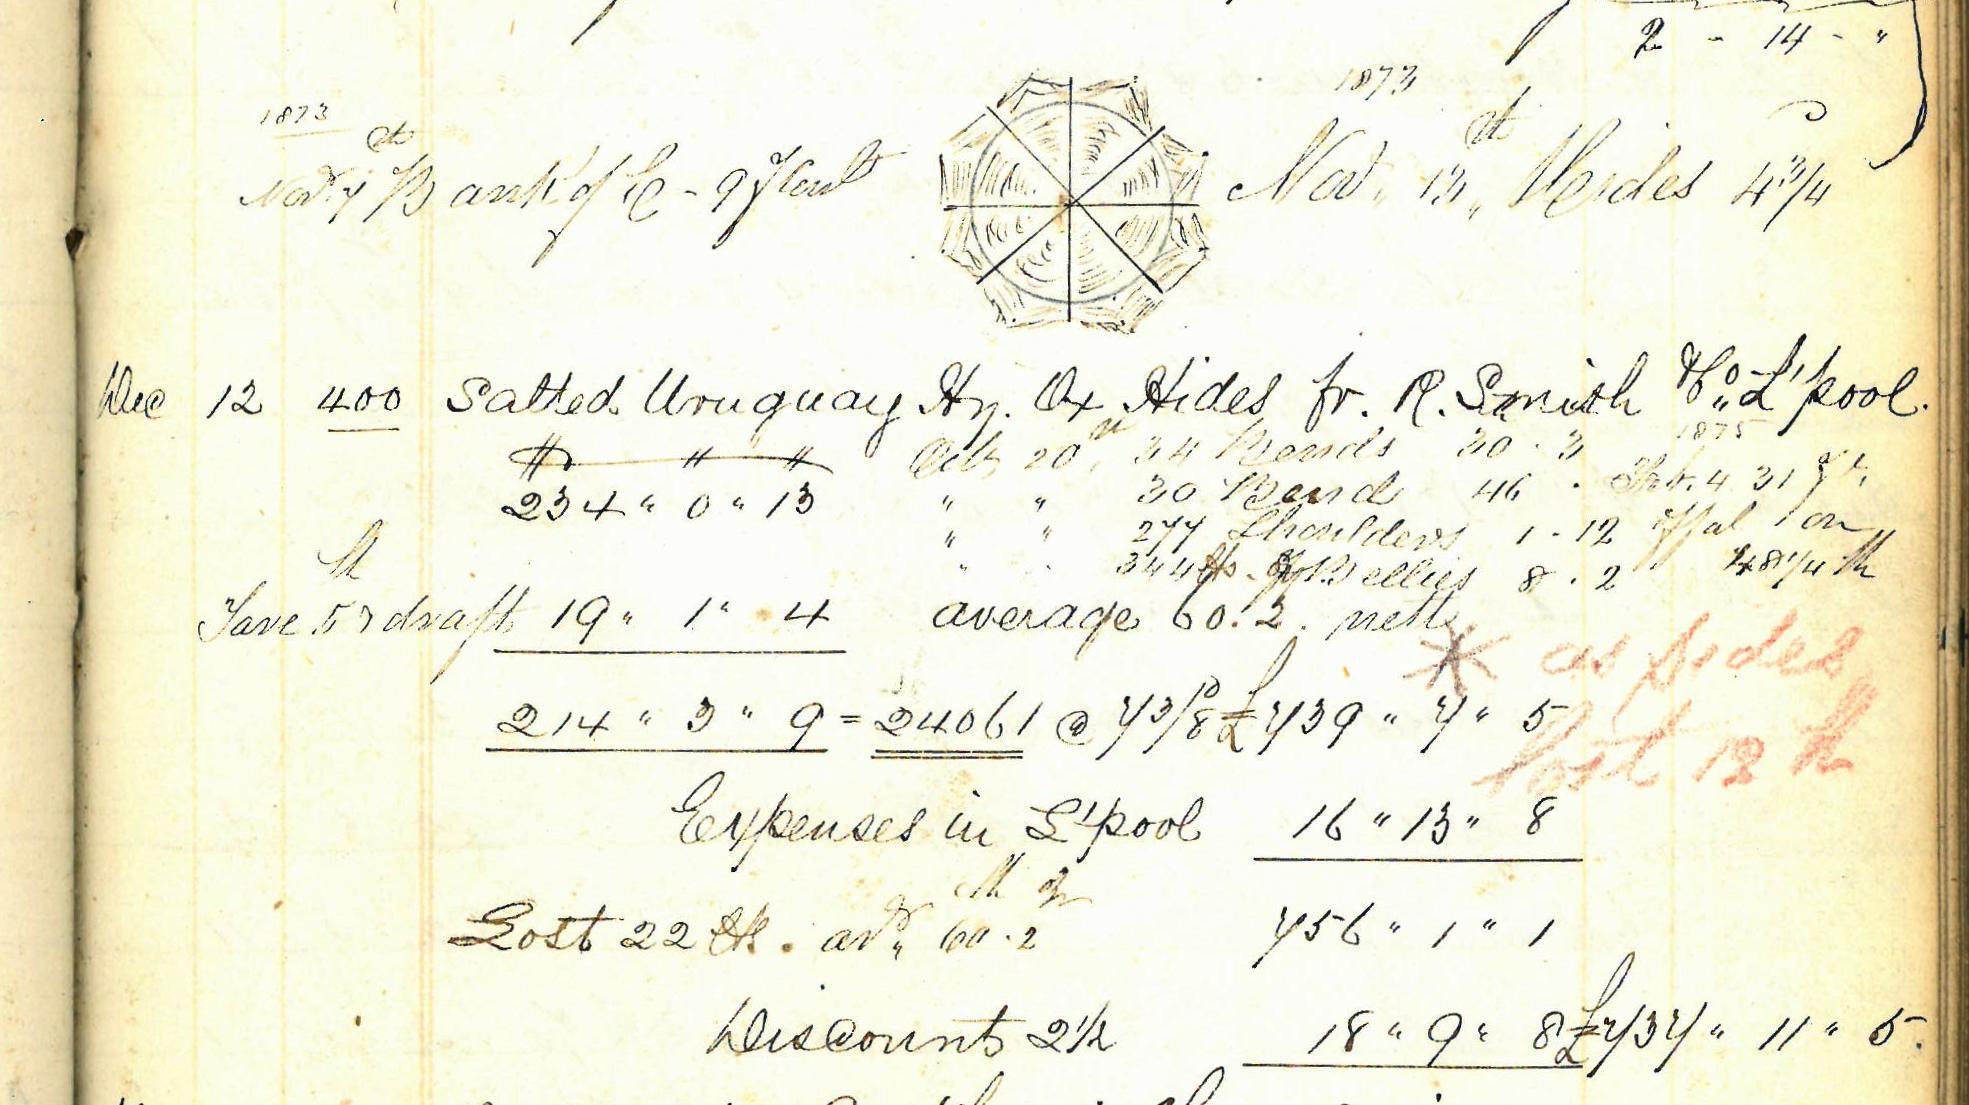 2 - 14 - "
1873
1873
Novr 7th Bank of E - 9 p Cent
Novr 13th Hides 4 3/4
Dec 12 400 Salted Uruguay Hy. Ox Hides fr. R. Smith & Co L'pool.
Oct 20th 34 Bends 30 . 3 1875
234 " 0 " 13 " " 30 Bend 46 . Feb. 4 31
" " 277 Shoulders 1 - 12 offal on
" " 344 Bellies 8 . 2 48 1/4 lb
lb
Tare 5 draft 19 " 1 " 4 average 60. 2. nett
* as sides
214 " 3 " 9 = 24061 @ 7 3/8 D £739 " 7 " 5
lost 12 lb
Expenses in L'pool 16 " 13 " 8
Lost 22 lb. avr. 60 . 2 756 " 1 " 1
Discount 2 1/2 18 " 9 " 8 £737 " 11 " 5.